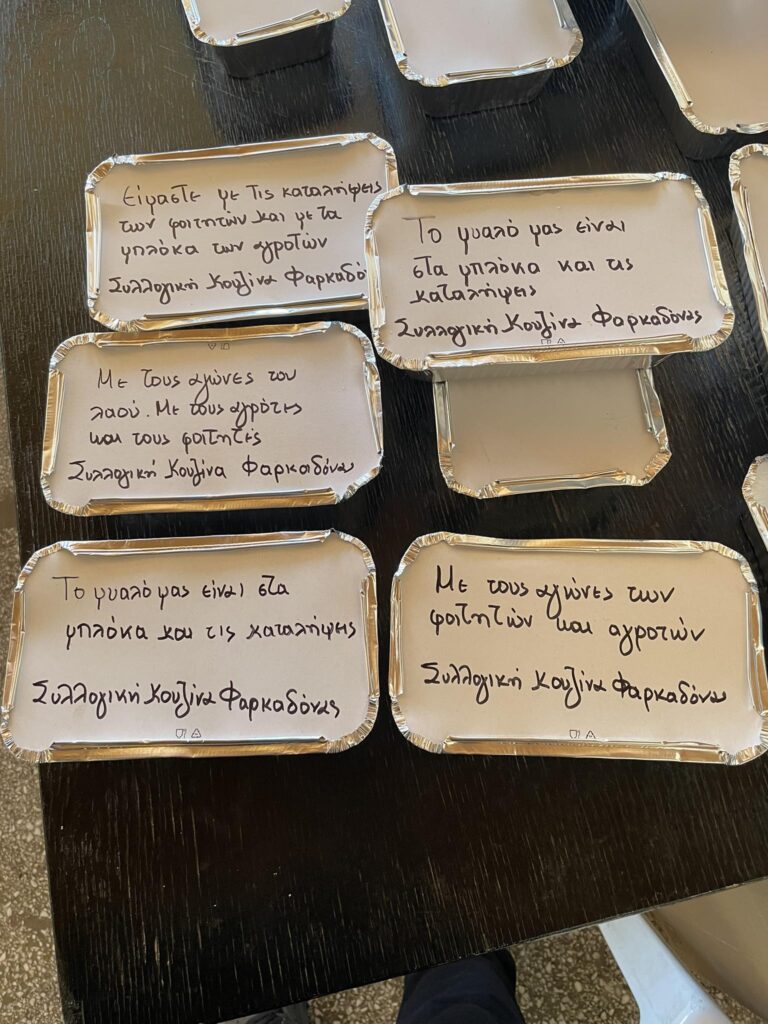 Είμαστε με τις καταλήψεις
των φοιτητών και με τα
μπλόκα των αγροτών
Συλλογική Κουζίνα Φαρκαδό
Το μυαλό μας είναι
στα μπλόκα και τις
καταλήψεις
Συλλογική Κουζίνα Φαρκαδόνας
Με τους αγώνες του
λαού. Με τους αγρότες
και τους φοιτητές
Συλλογική Κουζίνα Φαρκαδόνας
Το μυαλό μας είναι στα
μπλόκα και τις καταλήψεις
Συλλογική Κουζίνα Φαρκαδόνας
Με τους αγώνες των
φοιτητών και αγροτών
Συλλογική Κουζίνα Φαρκαδόνας